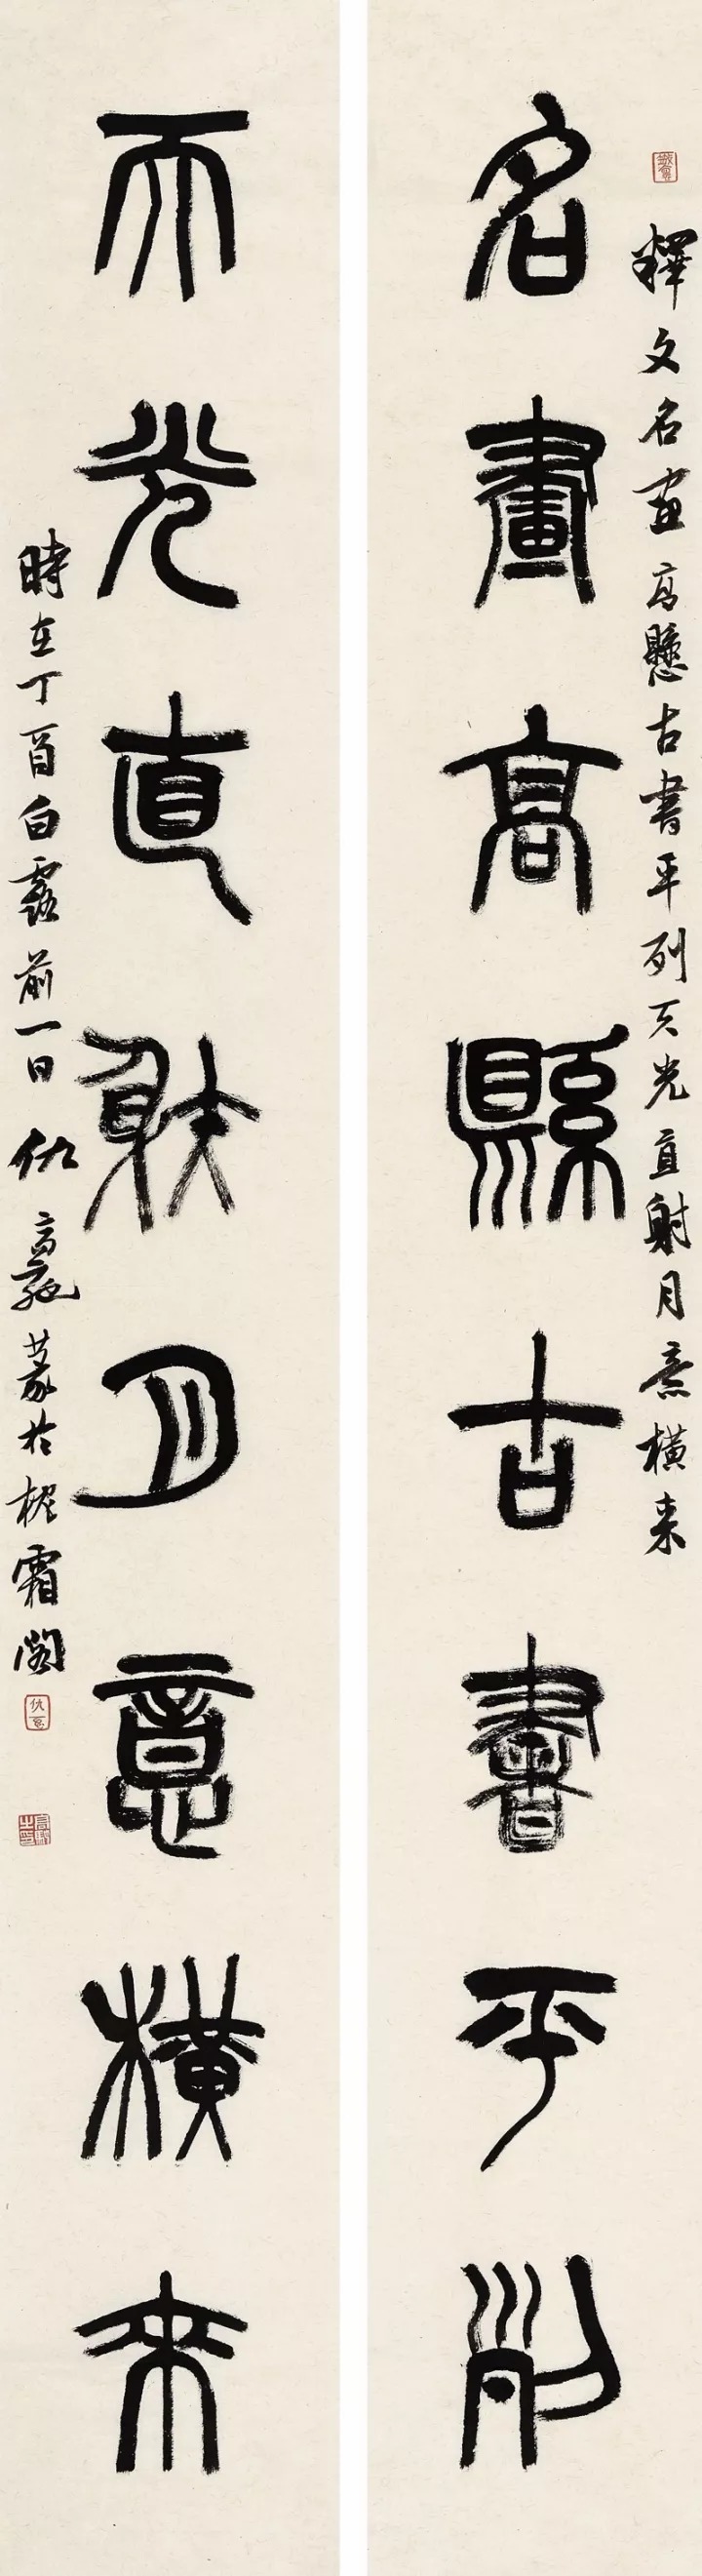 釋文名画高懸古書平列天光直射月意橫来
名畫高縣古書平列
天光直射月意橫來
時在丁酉白露前一日仇高馳篆於枕霜閣
仇